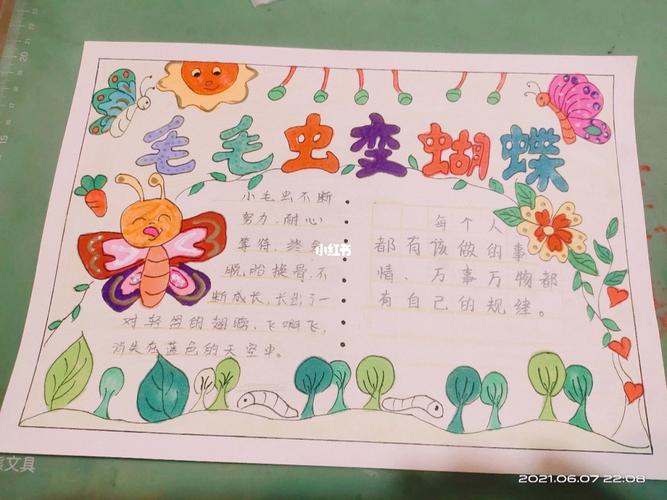 毛毛虫变蝴蝶
小毛虫不断
努力、耐心
等待，终
脱胎换骨，不
断成长，长出了一
对轻盈的翅膀，飞啊飞，
消失在蓝色的天空中。
每个人
都有该做的事
情，万事万物都
有自己的规律。
小红书
文具
15
20
2021.06.07 22:08